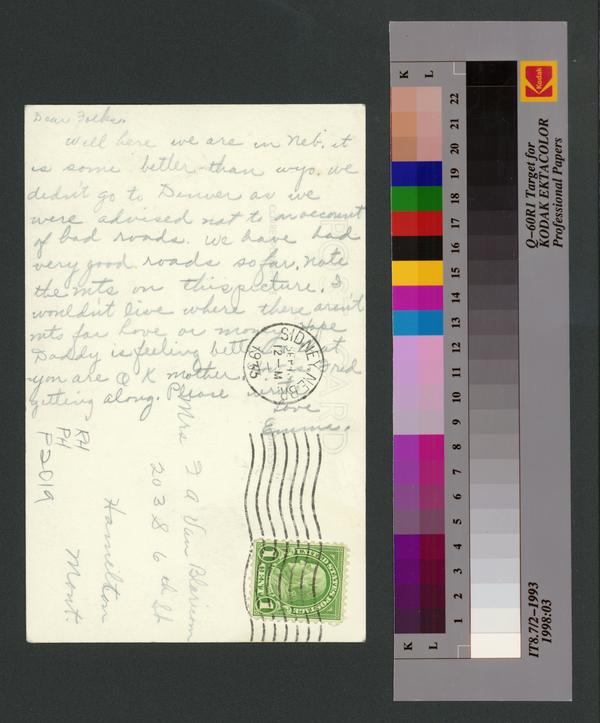 Dear Folks.
Well here we are in Neb. it
is some better than wyo. we
didn't go to Denver as we
were advised not to on account
of bad roads. we have had
very good roads so far. Note
the mts on this picture. I
wouldn't live where there aren't
mts for love or money. Hope
Daddy is feeling better &
you are O K mother.
getting along. Please write
Love
Emma.
RH
PH
P2019
Mrs F A Van Blaricom
203 S 6 th St
Hamilton
Mont.
SIDNEY, NEBR.
SEP
12-M
1935
UNITED STATES POSTAGE
1 CENT 1
Kodak
Q-60R1 Target for
KODAK EKTACOLOR
Professional Papers
IT8.7/2-1993
1998:03
K
L
22
21
20
19
18
17
16
15
14
13
12
11
10
9
8
7
6
5
4
3
2
1
K
L